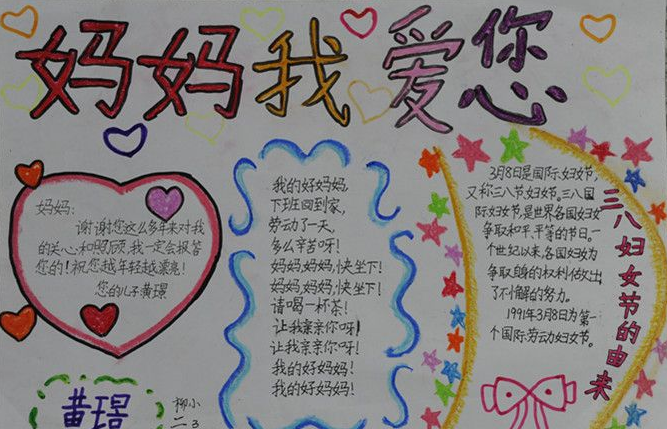 妈妈我爱您
妈妈:
谢谢您这么多年来对我
的关心和照顾,我一定会报答
您的!祝您越年轻越漂亮!
您的儿子黄璟
我的好妈妈,
下班回到家,
劳动了一天,
多么辛苦呀!
妈妈,妈妈,快坐下!
妈妈,妈妈,快坐下!
请喝一杯茶!
让我亲亲你呀!
让我亲亲你呀!
我的好妈妈!
我的好妈妈!
3月8日是国际妇女节,
又称三八节妇女节。三八国
际妇女节,是世界各国妇女
争取和平、平等的节日。一
个世纪以来,各国妇女为
争取自身的权利做出
了不懈的努力。
1991年3月8日为第一
个国际劳动妇女节。
三八妇女节的由来
黄璟
柳小
二3